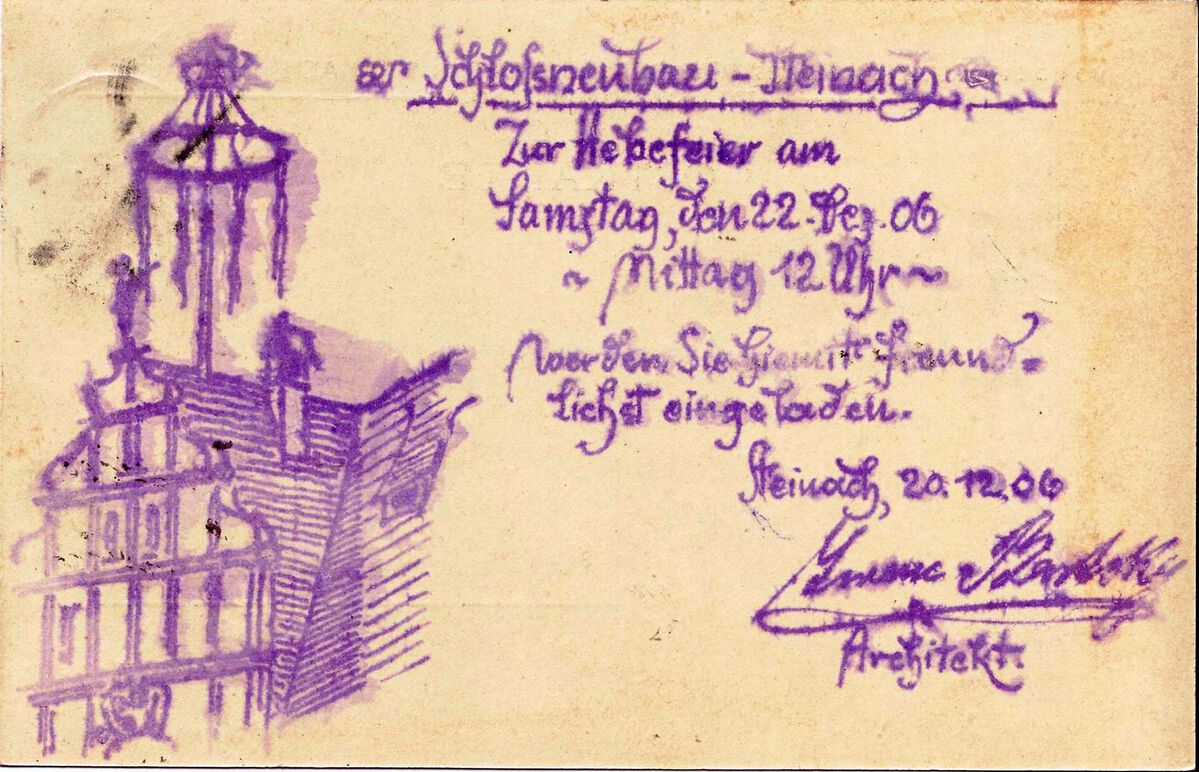 Schlossneubau - Steinach
Zur Hebefeier am
Samstag, den 22. Dez. 06
~ Mittag 12 Uhr ~
werden Sie hiemit freund-
lichst eingeladen.
Steinach, 20.12.06
Architekt.